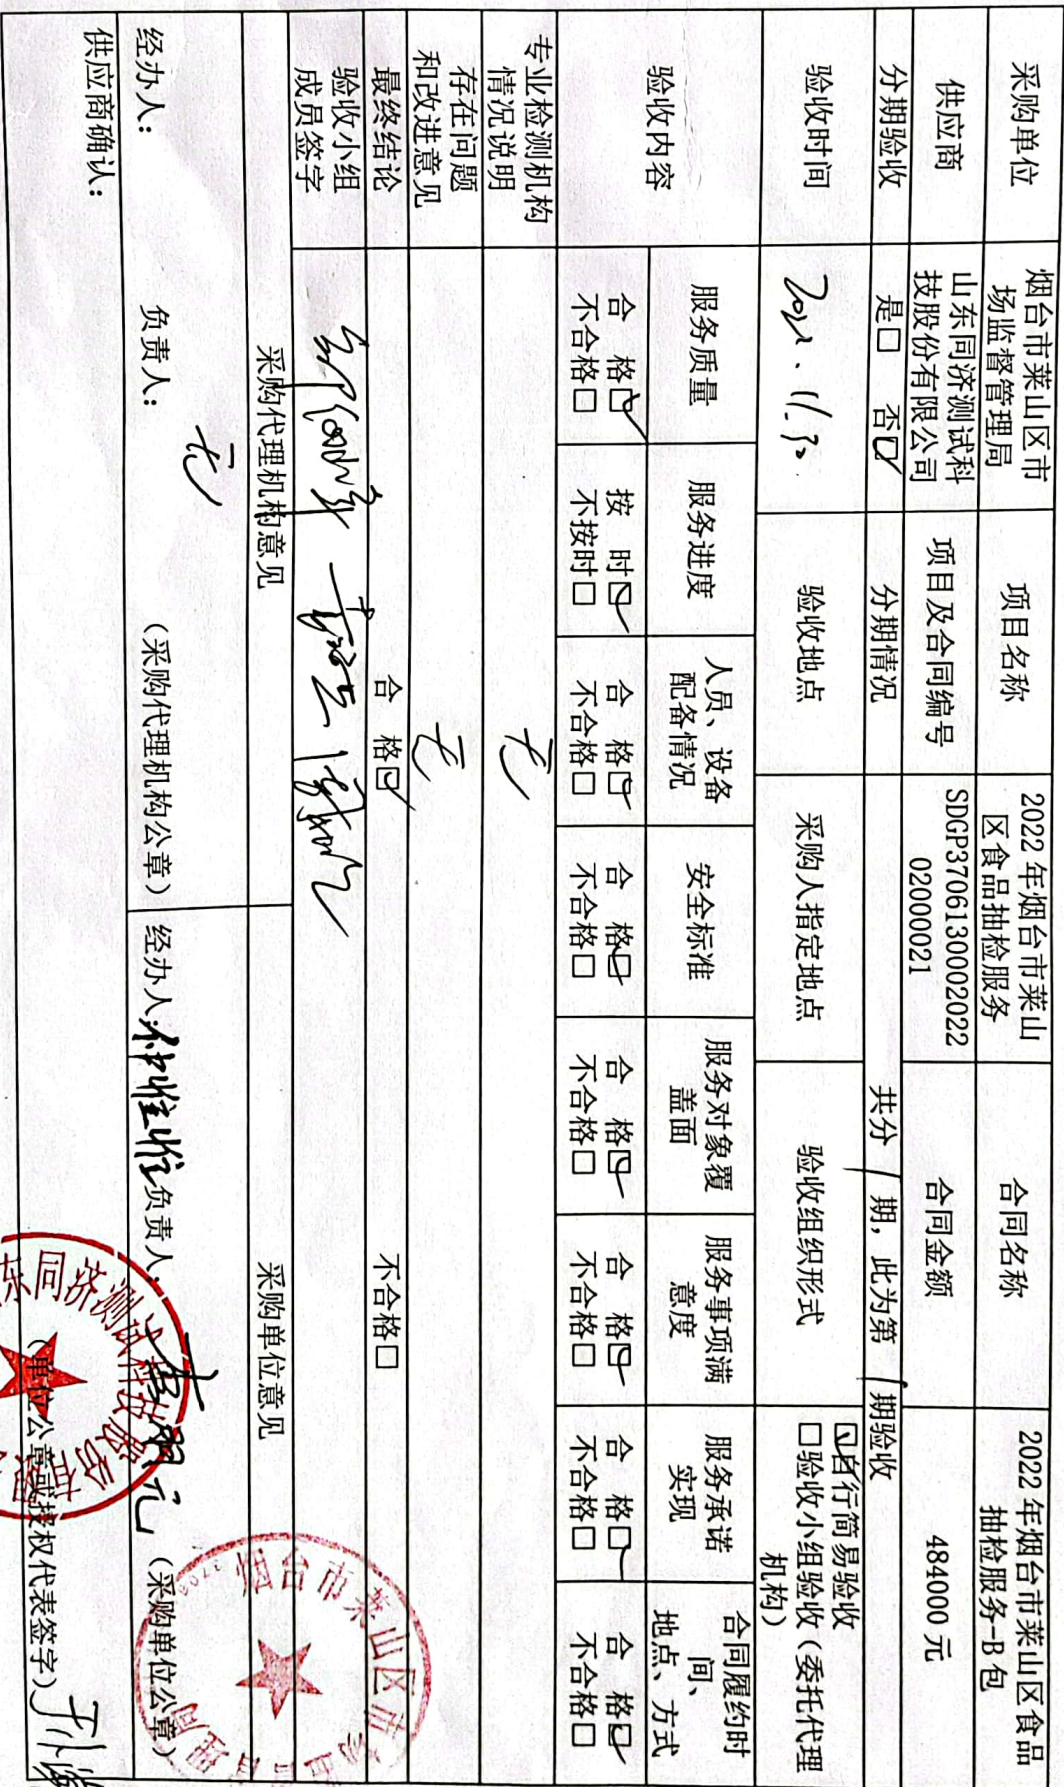 采购单位
烟台市莱山区市
场监督管理局
项目名称
2022 年烟台市莱山
区食品抽检服务
合同名称
2022 年烟台市莱山区食品
抽检服务-B 包
供应商
山东同济测试科
技股份有限公司
项目及合同编号
SDGP3706130002022
02000021
合同金额
484000 元
分期验收
是□ 否☑
分期情况
共分 / 期，此为第 / 期验收
验收时间
2022、11.30.
验收地点
采购人指定地点
验收组织形式
☑自行简易验收
□验收小组验收（委托代理
机构）
验收内容
服务质量
服务进度
人员、设备
配备情况
安全标准
服务对象覆
盖面
服务事项满
意度
服务承诺
实现
合同履约时
间、
地点、方式
合 格☑
不合格□
按 时☑
不按时□
合 格☑
不合格□
合 格☑
不合格□
合 格☑
不合格□
合 格☑
不合格□
合 格☑
不合格□
合 格☑
不合格□
专业检测机构
情况说明
无
存在问题
和改进意见
无
最终结论
合 格☑
不合格□
验收小组
成员签字
采购代理机构意见
采购单位意见
无
经办人：
负责人：
（采购代理机构公章）
经办人：
负责人：
（采购单位公章）
烟台市莱山区市
供应商确认：
东同济测试科技股份有限
（单位公章或授权代表签字）